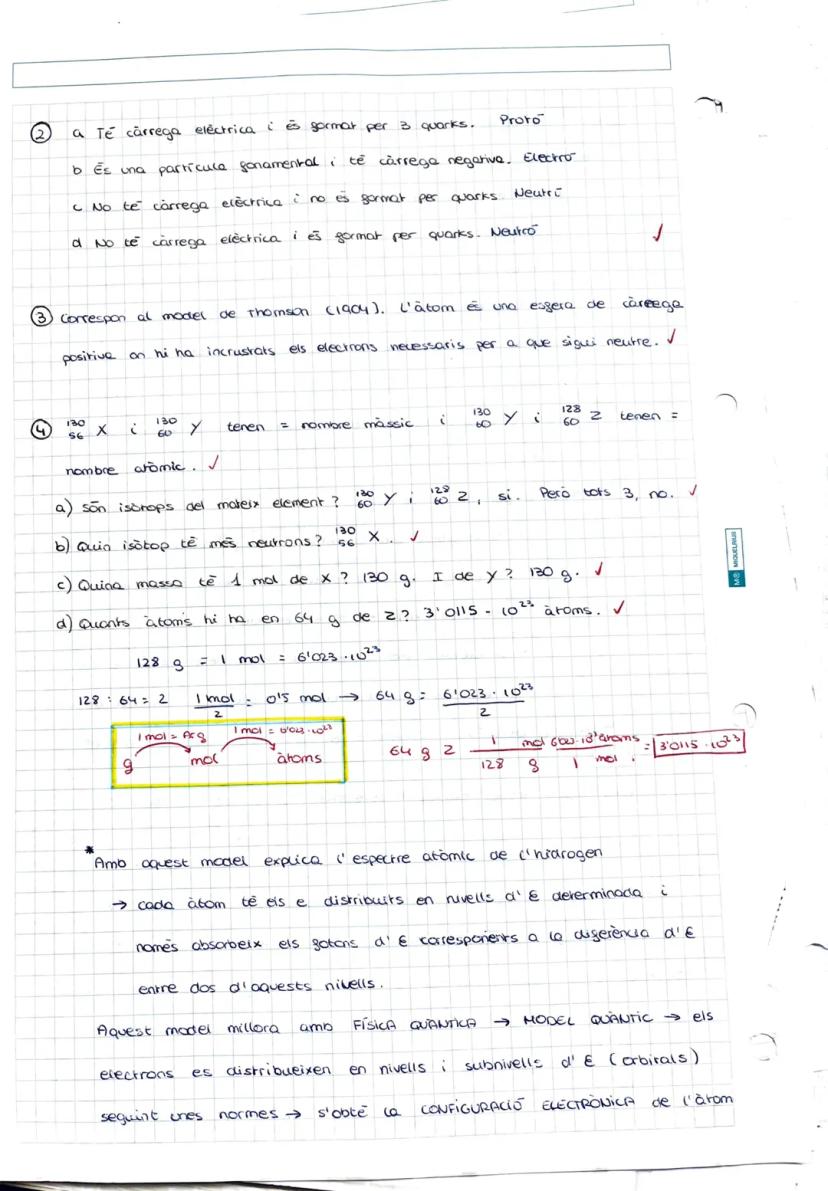 ② a Té càrrega elèctrica i és format per 3 quarks. Protó
b És una partícula fonamental i té càrrega negativa. Electró
c No té càrrega elèctrica i no és format per quarks Neutrí
d No té càrrega elèctrica i és format per quarks. Neutró ✓
③ Correspon al model de Thomson (1904). L'àtom és una esfera de càreega
positiva on hi ha incrustats els electrons necessaris per a que sigui neutre. ✓
④ ¹³⁰₅₆ X i ¹³⁰₆₀ Y tenen = nombre màssic i ¹³⁰₆₀ Y i ¹²⁸₆₀ Z tenen =
nombre atòmic. ✓
a) són isòtops del mateix element? ¹³⁰₆₀ Y i ¹²⁸₆₀ Z, si. Però tots 3, no. ✓
b) Quin isòtop té més neutrons? ¹³⁰₅₆ X. ✓
c) Quina massa té 1 mol de X? 130 g. I de Y? 130 g. ✓
d) Quants àtoms hi ha en 64 g de Z? 3'0115 · 10²³ àtoms. ✓
128 g = 1 mol = 6'023 · 10²³
128 : 64 = 2 1 mol / 2 = 0'5 mol → 64 g = 6'023 · 10²³ / 2
1 mol = Ar g 1 mol = 6'023 · 10²³
g mol àtoms
64 g Z 1 mol / 128 g 6'023 · 10²³ àtoms / 1 mol = 3'0115 · 10²³
MIQUELRIUS
* Amb aquest model explica l'espectre atòmic de l'hidrogen
→ cada àtom té els e distribuïts en nivells d'E determinada i
només absorbeix els fotons d'E corresponents a la diferència d'E
entre dos d'aquests nivells.
Aquest model millora amb FÍSICA QUÀNTICA → MODEL QUÀNTIC → els
electrons es distribueixen en nivells i subnivells d'E (orbitals)
seguint unes normes → s'obté la CONFIGURACIÓ ELECTRÒNICA de l'àtom